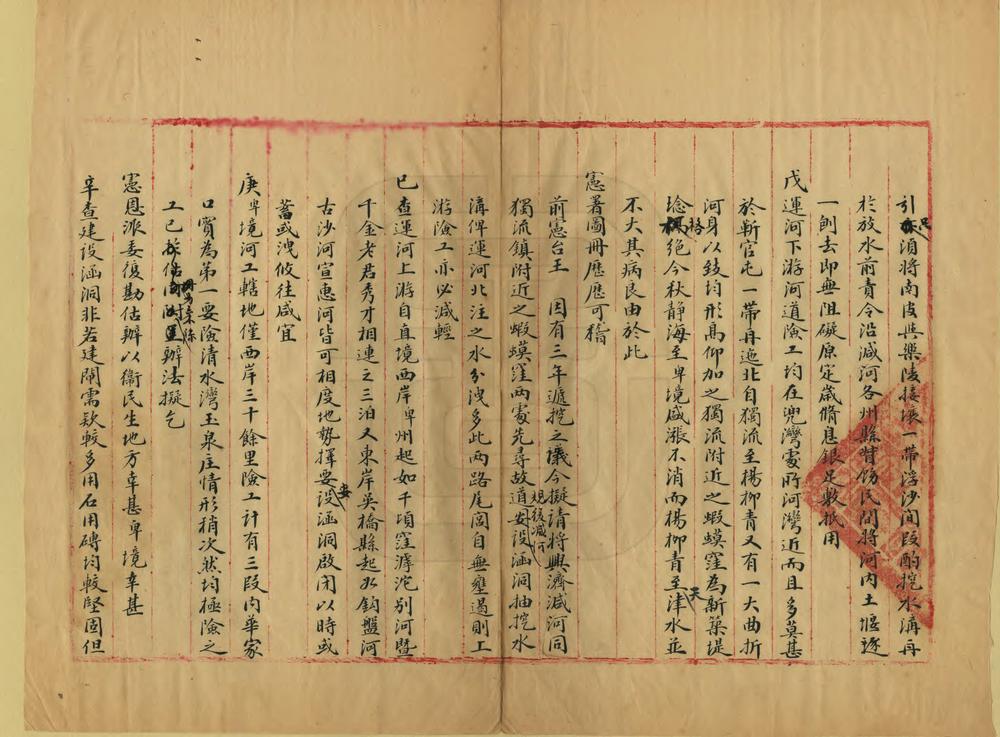 引須將南皮與樂陵接壤一帶浮沙間段酌挖水溝再
於放水前責令沿減河各州縣督飭民間將河內土堰逐
一刨去即無阻礙原定歲脩息銀足敷抵用
戊運河下游河道險工均在兜灣處所河灣近而且多莫甚
於靳官屯一帶再迤北自獨流至楊柳青又有一大曲折
河身以致均形高仰加之獨流附近之蝦蟆窪為新築堤
埝格絕今秋靜海至卑境盛漲不消而楊柳青至天津水並
不大其病良由於此
憲署圖冊歷歷可稽
前憲台王 因有三年遞挖之議今擬請將興濟減河同
獨流鎮附近之蝦蟆窪兩處先尋故道規復減河安設涵洞抽挖水
溝俾運河北注之水分洩多此兩路尾閭自無壅遏則上
游險工亦必減輕
已查運河上游自直境西岸卑州起如千頃窪滹沱別河暨
千金老君秀才相連之三泊又東岸吳橋縣起如鈎盤河
古沙河宣惠河皆可相度地勢擇要安設涵洞啟閉以時或
蓄或洩攸往咸宜
庚卑境河工轄地僅西岸三十餘里險工計有三段內華家
口實為第一要險清水灣玉泉庄情形稍次然均極險之
工已辦法擬乞
憲恩派委復勘估辦以衞民生地方幸甚卑境幸甚
辛查建設涵洞非若建閘需款較多用石用磚均較堅固但